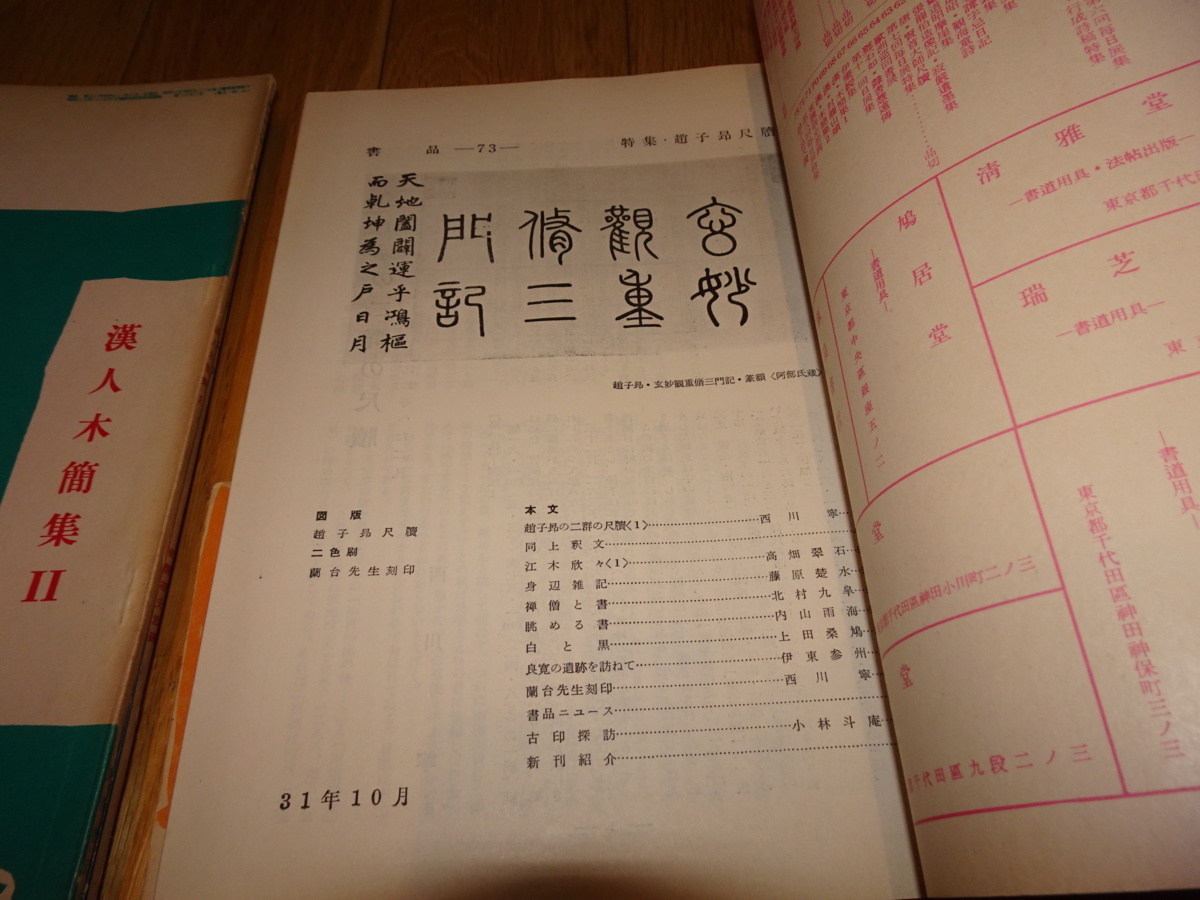 漢人木簡集 II
書品 —73—
特集・趙子昂尺牘
玄妙
觀重
脩三
門記
天地闔闢運乎鴻樞
而乾坤為之戸日月
趙子昂・玄妙観重脩三門記・篆額〈阿部氏蔵〉
図版
趙子昂尺牘
二色刷
蘭台先生刻印
本文
趙子昂の二群の尺牘〈1〉…………西川寧
同上釈文…………
江木欣々〈1〉…………高畑翠石
身辺雑記…………藤原楚水
禅僧と書…………北村九皐
眺める書…………内山雨海
白と黒…………上田桑鳩
良寛の遺跡を訪ねて…………伊東参州
蘭台先生刻印…………西川寧
書品ニュース…………
古印探訪…………小林斗庵
新刊紹介…………
31年10月
清雅堂
—書道用具・法帖出版—
東京都千代田
鳩居堂
—書道用具—
東京都中央區銀座五ノ二
瑞芝
—書道用具—
東
堂
千代田區神田小川町二ノ三
—書道用具—
東京都千代田區神田神保町三ノ三
堂
千代田區九段二ノ三